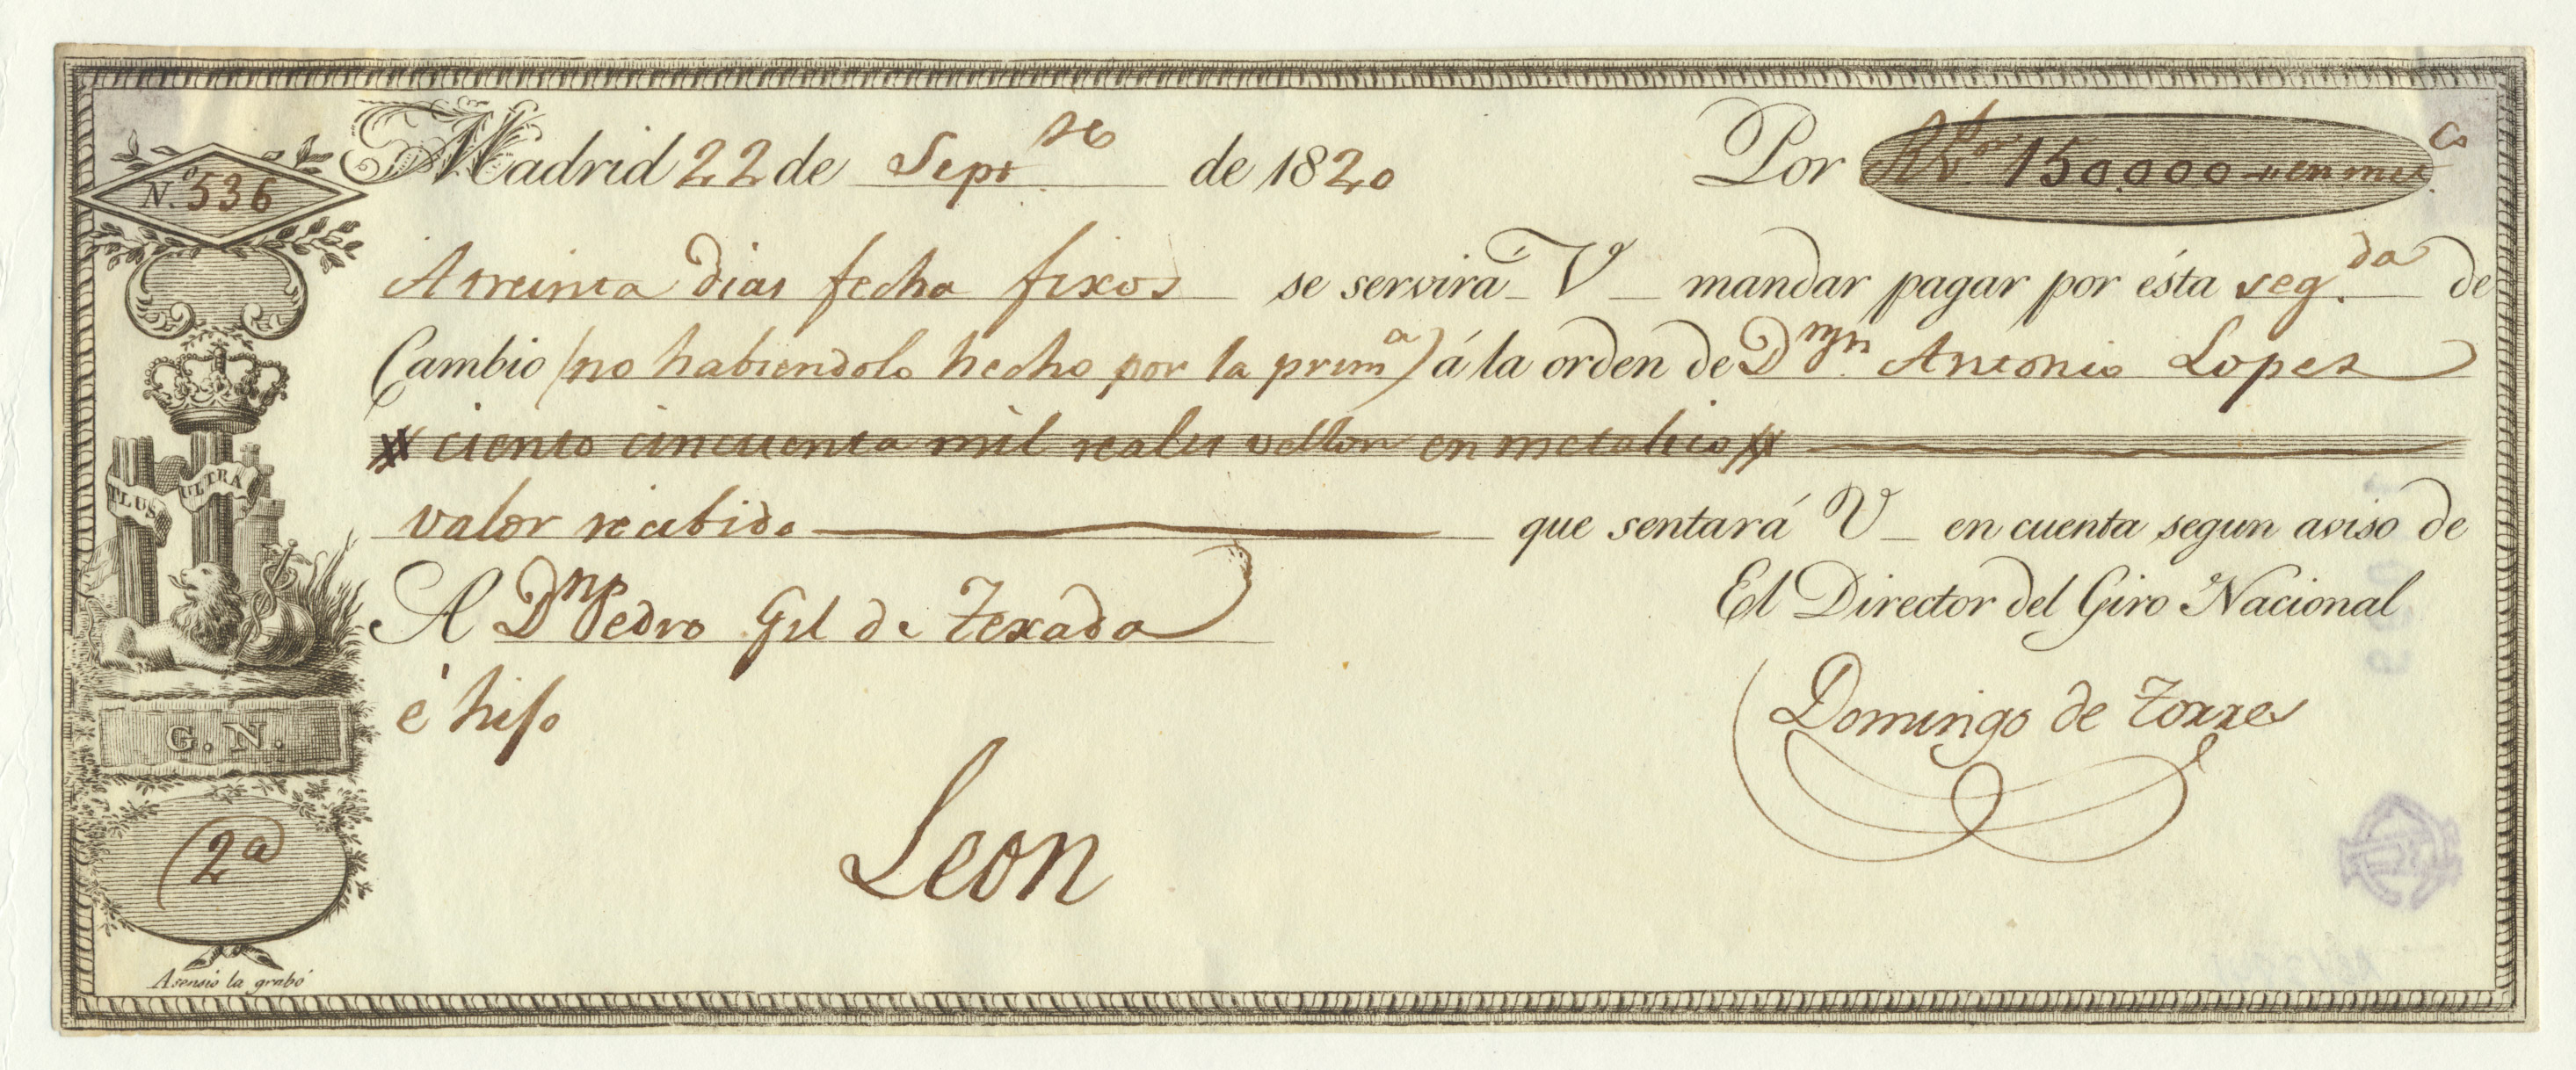 Nº 536
Madrid 22 de Septre de 1820
Por Rs von 150.000 en metco
A treinta dias fecha fixos se servirá V mandar pagar por ésta seg.da de
Cambio (no habiendolo hecho por la prima) á la orden de Dn Antonio Lopez
ciento cincuenta mil reales vellon en metalico
valor recibido que sentará V en cuenta segun aviso de
A Dn Pedro Gil de Texada
El Director del Giro Nacional
é hijo
Domingo de Torres
Leon
PLUS ULTRA
G. N.
2a
Asensio la grabó